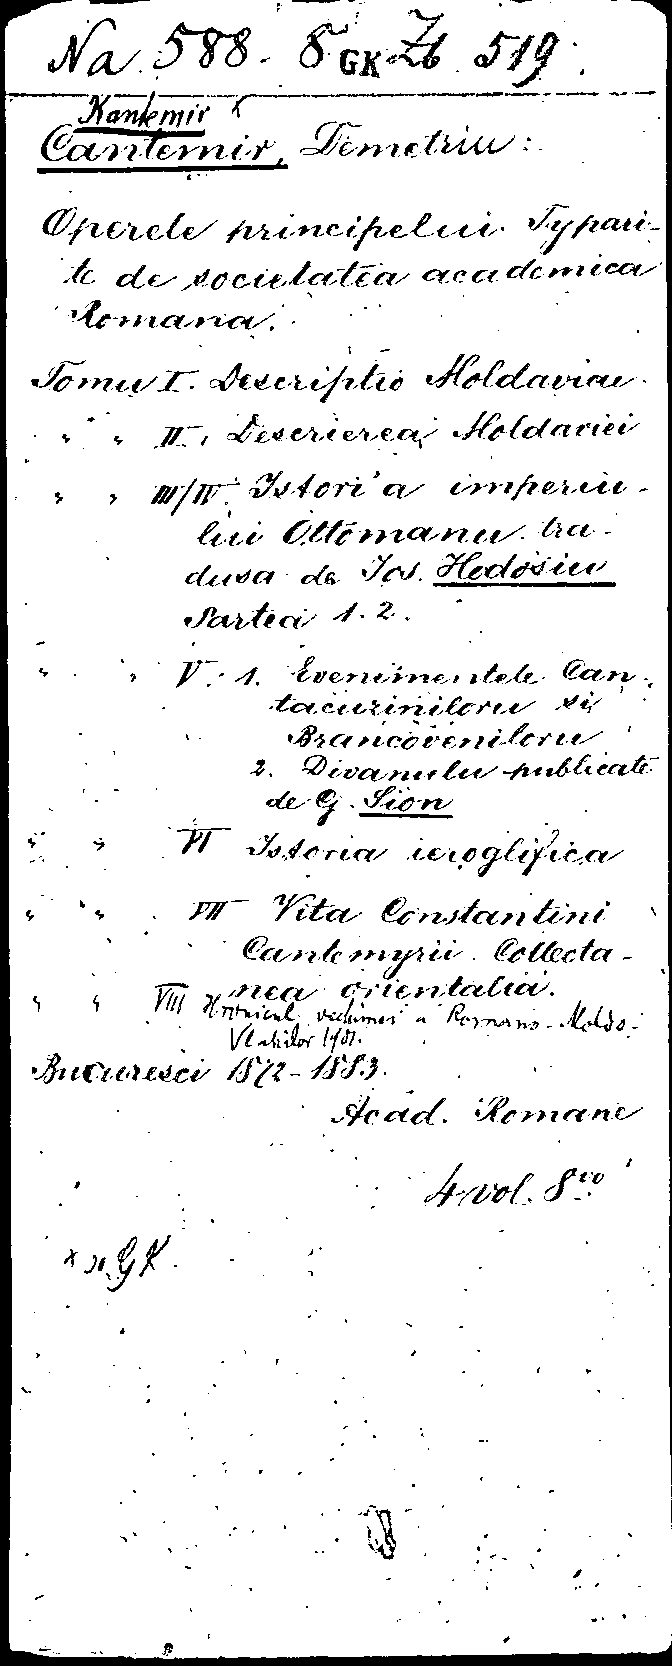 Na 588. 8 GK Zb 519.
Kantemir
Cantemir, Demetriu:
Operele principelui. Typari-
te de societatea academica
Romana.
Tomu I. Descriptio Moldaviae.
" " II. Descrierea Moldaviei
" " III/IV. Istori'a imperiu-
lui Ottomanu. tra-
dusa de Ios. Hodosiu
Partea 1. 2.
" " V. 1. Evenimentele Can-
tacuziniloru si
Brancoveniloru
2. Divanulu publicate
de G. Sion
" " VI Istoria ieroglifica
" " VII Vita Constantini
Cantemyrii. Collecta-
nea orientalia.
" " VIII Hronicul vechimei a Romano-Moldo-
Vlahilor 1901.
Bucuresci 1872-1883.
Acad. Romane
4 vol. 8vo
GK